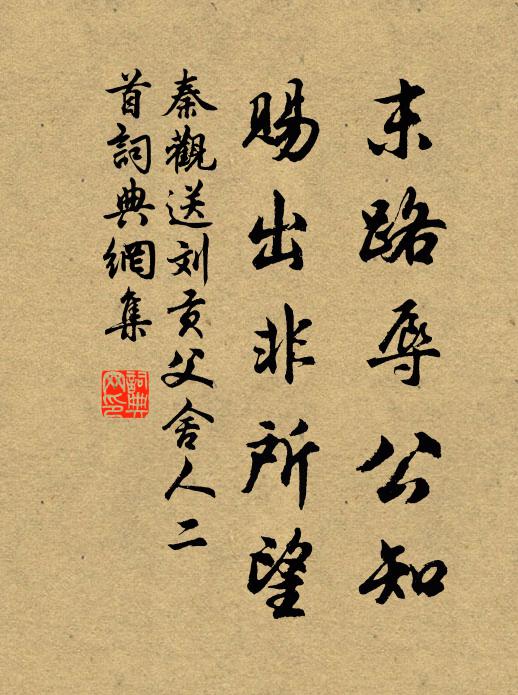 末路辱公知
賜出非所望
秦觀送刘貢父舍人二
首詞典網集
詞典
网印